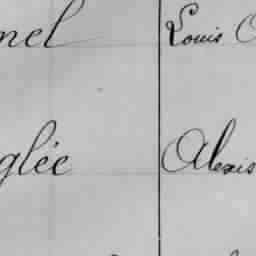 nel Louis
glée Alexis